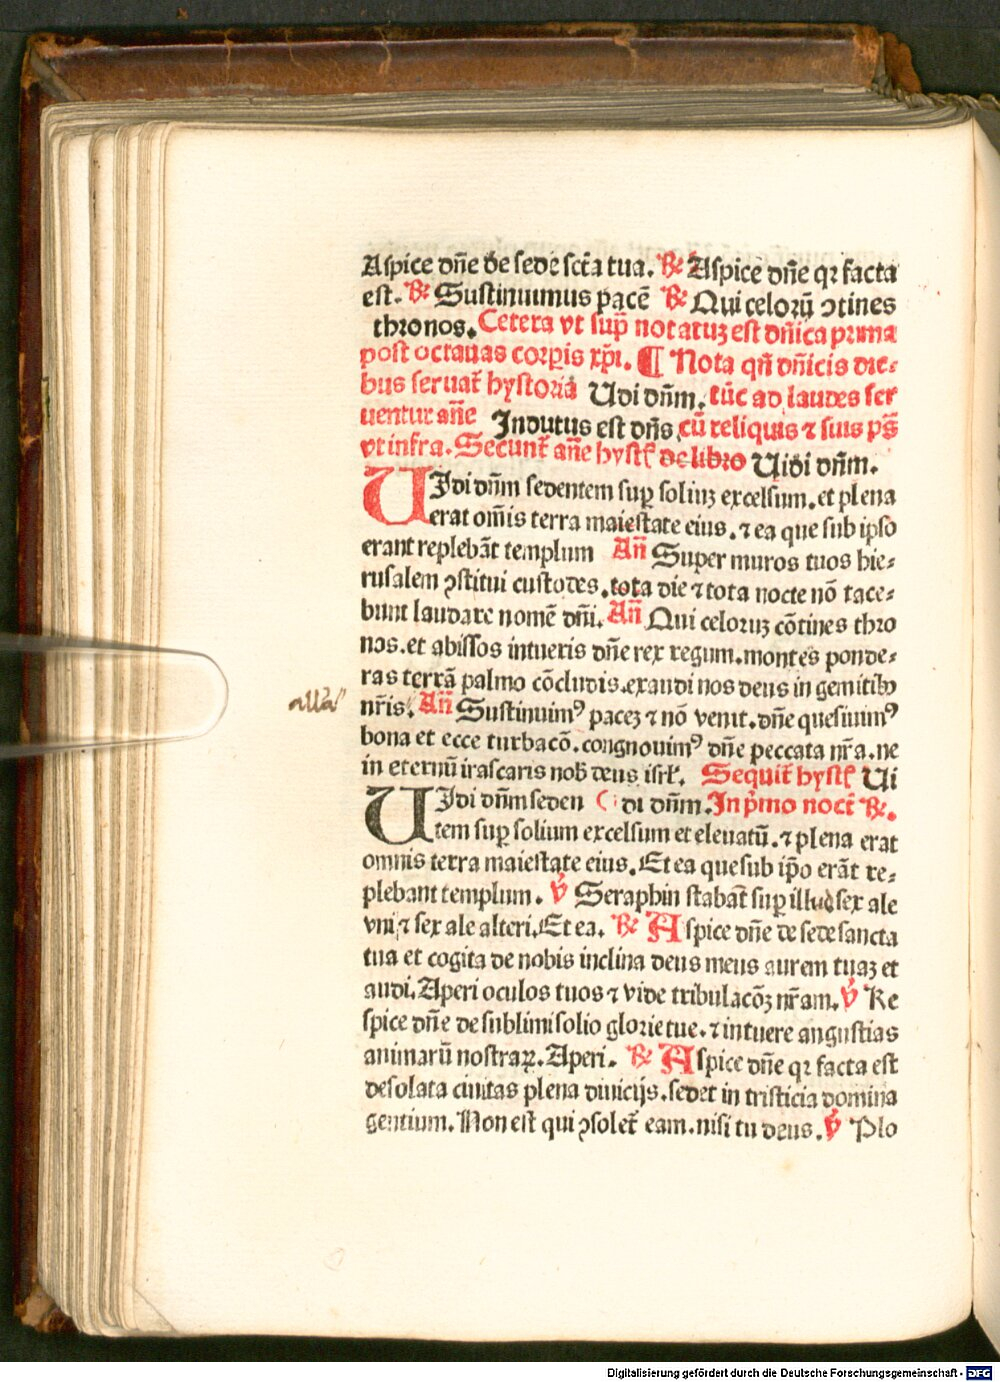 Aspice dñe de sede sct̃a tua. ℟ Aspice dñe qꝛ facta
est. ℟ Sustinuimus pacē ℟ Qui celorū ꝯtines
thronos. Cetera vt sup̃ notatuꝫ est dñica prima
post octauas corꝑis xp̃i. ¶ Nota qñ dñicis die⸗
bus seruat̃ hystoria Uidi dñm. tūc ad laudes ser
uentur añe Indutus est dñs. cū reliquis ⁊ suis pš
vt infra. Secunt̃ añe hyst̃ de libro Uidi dñm.
UIdi dñm sedentem suꝑ soliuꝫ excelsum. et plena
erat om̃is terra maiestate eius. ⁊ ea que sub ipso
erant replebāt templum Añ Super muros tuos hie⸗
rusalem ꝯstitui custodes. tota die ⁊ tota nocte nō tace⸗
bunt laudare nomē dñi. Añ Qui celoruꝫ cōtines thro
nos. et abissos intueris dñe rex regum. montes ponde⸗
ras terrā palmo cōcludis. exaudi nos deus in gemitibꝰ
nr̃is. Añ Sustinuimꝰ paceꝫ ⁊ nō venit. dñe quesiuimꝰ
alla
bona et ecce turbacō. congnouimꝰ dñe peccata nr̃a. ne
in eternū irascaris nob̃ deus isrl̃. Sequit̃ hyst̃ Ui
UIdi dñm seden di dñm. In p̃mo noct̃ ℟.
tem suꝑ solium excelsum et eleuatū. ⁊ plena erat
omnis terra maiestate eius. Et ea que sub ip̃o erāt re⸗
plebant templum. ℣ Seraphin stabāt suꝑ illud sex ale
vni ⁊ sex ale alteri. Et ea. ℟ Aspice dñe de sede sancta
tua et cogita de nobis inclina deus meus aurem tuaꝫ et
audi. Aperi oculos tuos ⁊ vide tribulacōꝫ nr̃am. ℣ Re
spice dñe de sublimi solio glorie tue. ⁊ intuere angustias
animarū nostraꝝ. Aperi. ℟ Aspice dñe qꝛ facta est
desolata ciuitas plena diuicijs. sedet in tristicia domina
gentium. Non est qui ꝯsolet̃ eam. nisi tu deus. ℣ Plo
Digitalisierung gefördert durch die Deutsche Forschungsgemeinschaft - DFG